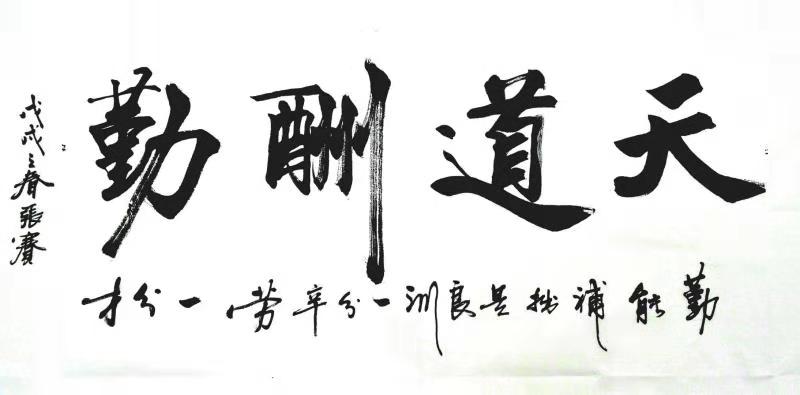 天道酬勤
勤能補拙是良訓一分辛劳一分才
戊戌之春張賽